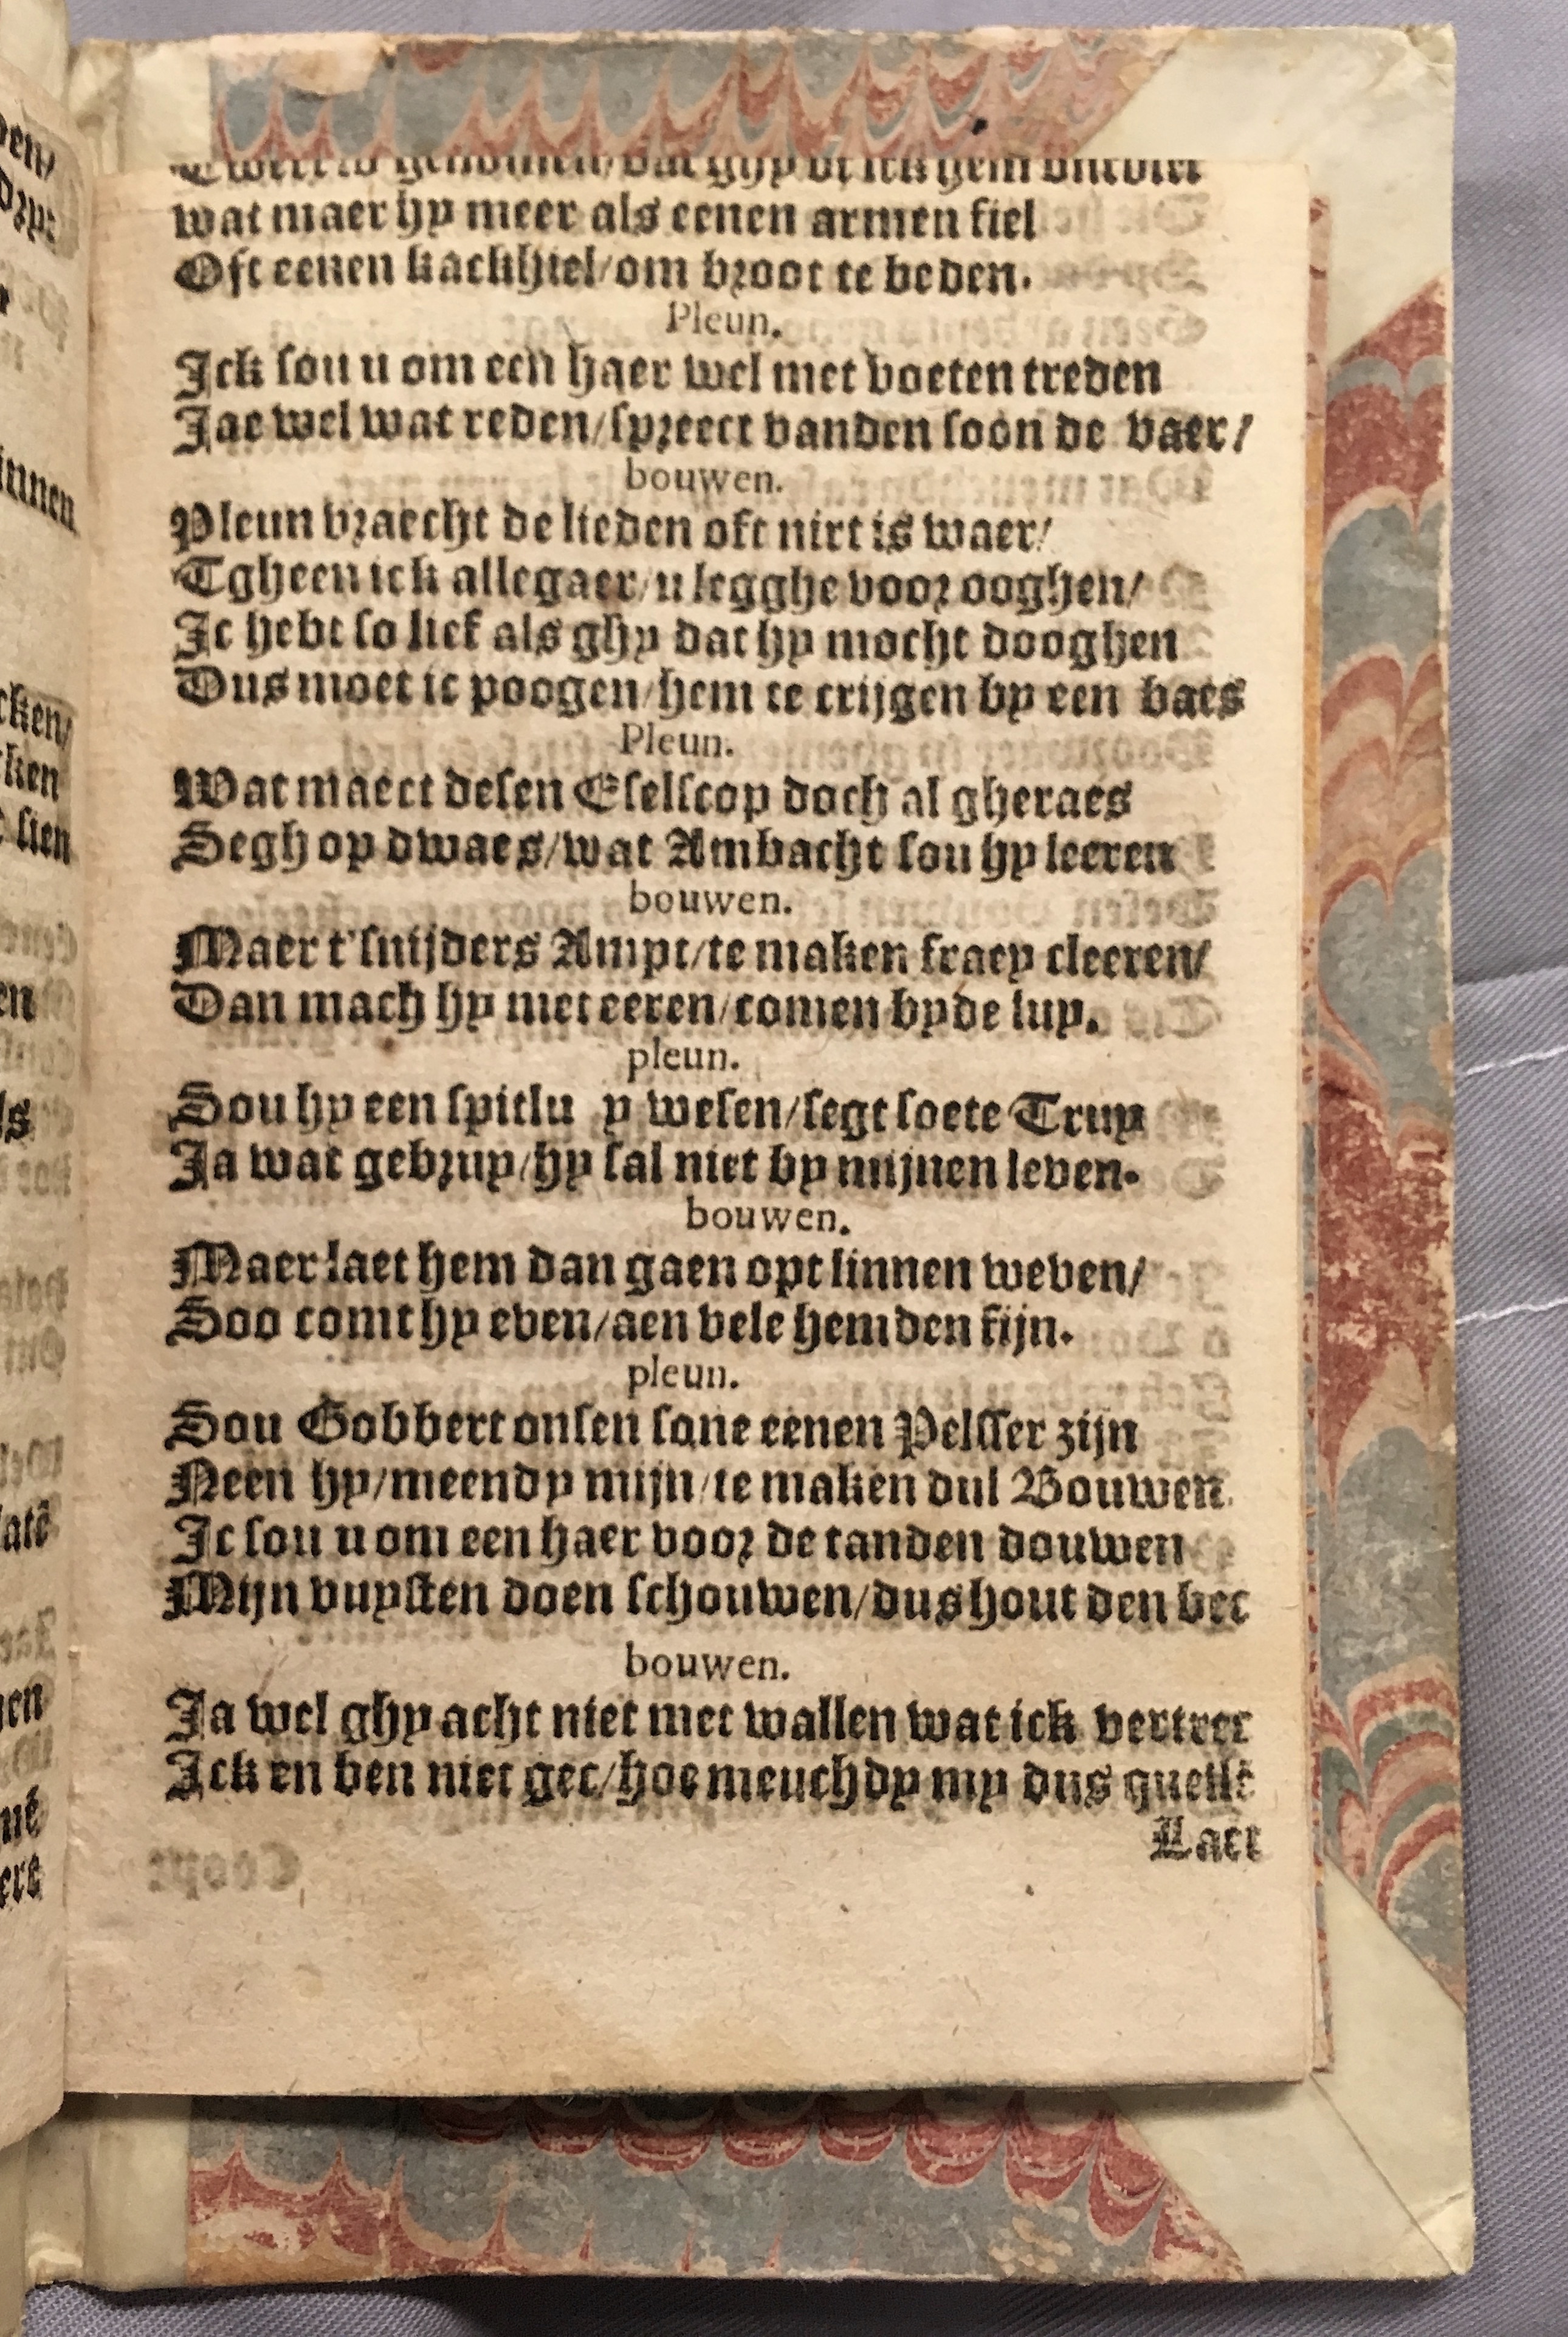 wat maer hy meer als eenen armen fiel
Oft eenen kackhiel/om broot te beden.
Pleun.
Ick sou u om een haer wel met voeten treden
Jae wel wat reden/spreect vanden soon de vaer/
bouwen.
Pleun vraecht de lieden oft niet is waer/
Tgheen ick allegaer/u legghe voor ooghen/
Ic hebt so lief als ghy dat hy mocht dooghen
Dus moet ic poogen/hem te crijgen by een baes
Pleun.
Wat maect desen Eselscop doch al gheraes
Segh op dwaes/wat Ambacht sou hy leeren
bouwen.
Maer t'snijders Ampt/te maken fraey cleeren/
Dan mach hy met eeren/comen byde luy.
pleun.
Sou hy een spitlu y wesen/segt soete Truy
Ja wat gebruy/hy sal niet by mijnen leven.
bouwen.
Maer laet hem dan gaen opt linnen weven/
Soo comt hy even/aen vele hemden fijn.
pleun.
Sou Gobbert onsen sone eenen Pelsser zijn
Neen hy/meendy mijn/te maken dul Bouwen.
Ic sou u om een haer voor de tanden douwen
Mijn vuysten doen schouwen/dus hout den bec
bouwen.
Ja wel ghy acht niet met wallen wat ick vertrec
Ick en ben niet gec/hoe meuchdy my dus quellē
Laet
den/
innen
cken/
ken
sien
en
ls